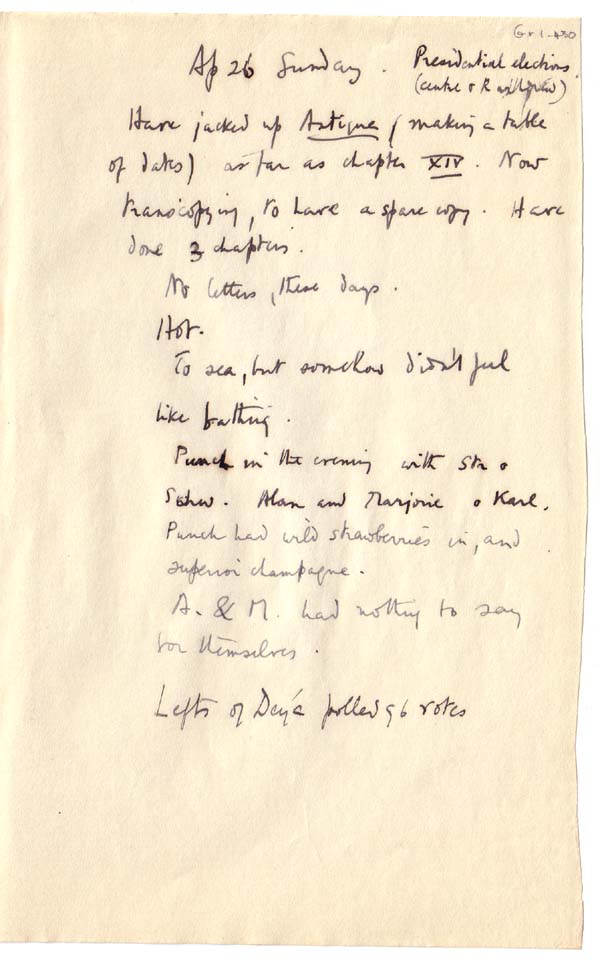 Gr 1-430
Ap 26 Sunday. Presidential elections.
(centre & R withdrew)
Have jacked up Antigua (making a table
of dates) as far as chapter XIV. Now
transcopying, to have a spare copy. Have
done 3 chapters.
No letters, these days.
Hot.
To sea, but somehow didn't feel
like bathing.
Punch in the evening with &
Schw. Alan and Marjorie & Karl.
Punch had wild strawberries in, and
superior champagne.
A. & M. had nothing to say
for themselves.
Lefts of Deyá polled 96 votes